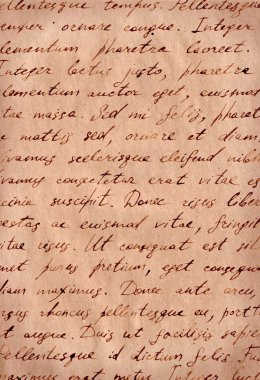 ellentesque tempus. Pellentesque
semper ornare congue. Integer
elementum pharetra laoreet.
Integer lectus justo, pharetra
elementum auctor eget, euismod
vitae massa. Sed mi felis, pharet
c mattis sed, ornare et diam.
ivamus scelerisque eleifend nibh
ivamus consectetur erat vitae es
acinia suscipit. Donec risus libe
estas ac euismod vitae, fringill
vitae risus. Ut consequat est sit
met purus pretium, eget consequa
diam maximus. Donec ante arcu,
rsus rhoncus pellentesque eu, portt
t augue. Duis ut facilisis sapie
Pellentesque id dictum felis. Fus
maximus erat metus. Integer